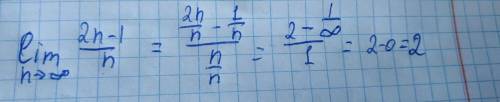 lim n→∞ (2n-1)/n = (2n/n - 1/n)/(n/n) = (2 - 1/∞)/1 = 2-0=2